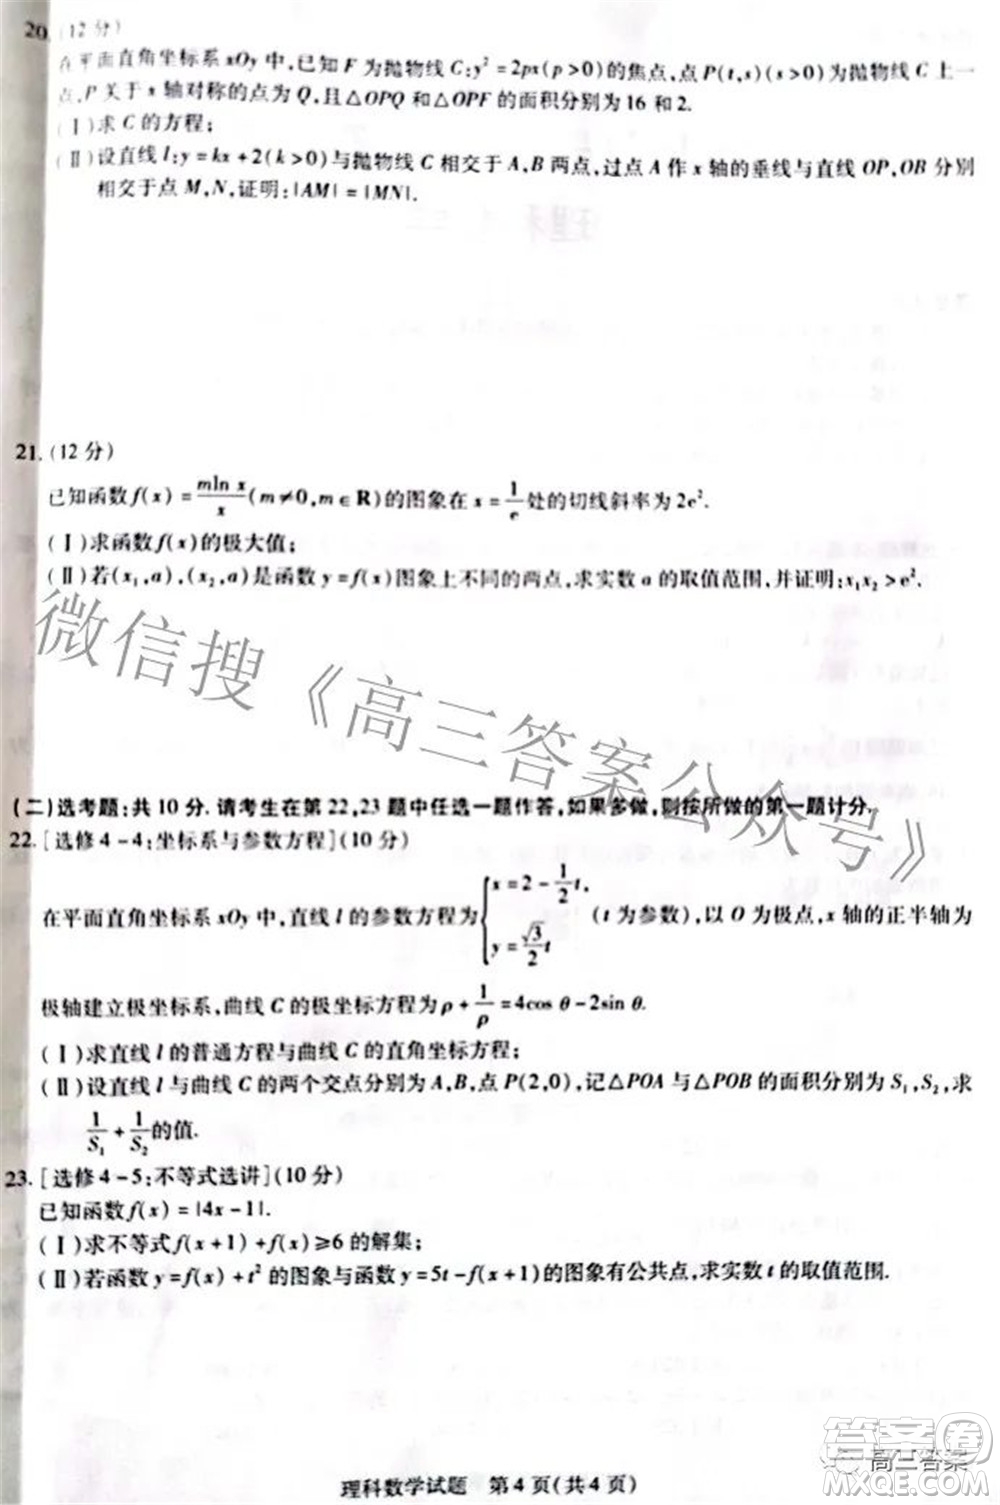 20. (12 分)
在平面直角坐标系 xOy 中,已知 F 为抛物线 C:y²=2px(p>0)的焦点,点 P(t,s)(s>0)为抛物线 C 上一
点,P 关于 x 轴对称的点为 Q,且△OPQ 和△OPF 的面积分别为 16 和 2.
(Ⅰ)求 C 的方程;
(Ⅱ)设直线 l:y=kx+2(k>0)与抛物线 C 相交于 A,B 两点,过点 A 作 x 轴的垂线与直线 OP,OB 分别
相交于点 M,N,证明:|AM|=|MN|.
21. (12 分)
已知函数 f(x)=mln x/x(m≠0,m∈R)的图象在 x=1/e 处的切线斜率为 2e².
(Ⅰ)求函数 f(x)的极大值;
(Ⅱ)若(x₁,a),(x₂,a)是函数 y=f(x)图象上不同的两点,求实数 a 的取值范围,并证明:x₁x₂>e².
微信搜《高三答案公众号》
(二)选考题:共 10 分. 请考生在第 22,23 题中任选一题作答,如果多做,则按所做的第一题计分.
22. [选修 4-4:坐标系与参数方程](10 分)
在平面直角坐标系 xOy 中,直线 l 的参数方程为{x=2-1/2t, y=√3/2t (t 为参数),以 O 为极点,x 轴的正半轴为
极轴建立极坐标系,曲线 C 的极坐标方程为 ρ+1/ρ=4cos θ-2sin θ.
(Ⅰ)求直线 l 的普通方程与曲线 C 的直角坐标方程;
(Ⅱ)设直线 l 与曲线 C 的两个交点分别为 A,B,点 P(2,0),记△POA 与△POB 的面积分别为 S₁,S₂,求
1/S₁+1/S₂的值.
23. [选修 4-5:不等式选讲](10 分)
已知函数 f(x)=|4x-1|.
(Ⅰ)求不等式 f(x+1)+f(x)≥6 的解集;
(Ⅱ)若函数 y=f(x)+t² 的图象与函数 y=5t-f(x+1)的图象有公共点,求实数 t 的取值范围.
答案圈
高三答案
MXQE.COM
理科数学试题 第 4 页(共 4 页)